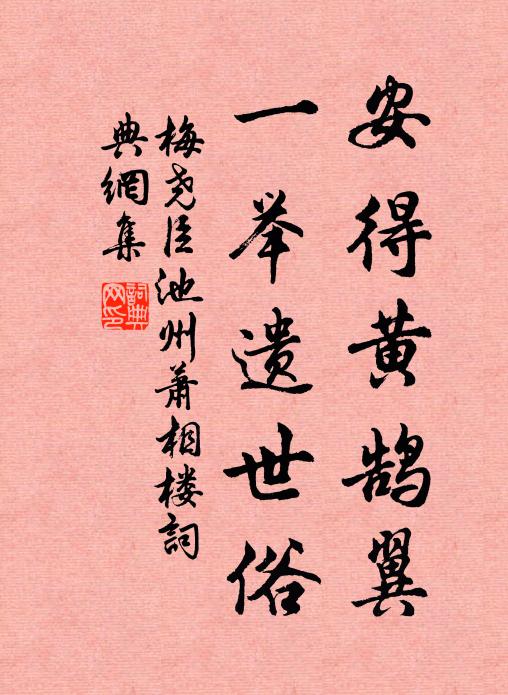 安得黄鹄翼
一举遗世俗
梅尧臣池州萧相楼詞
典網集
詞典网印